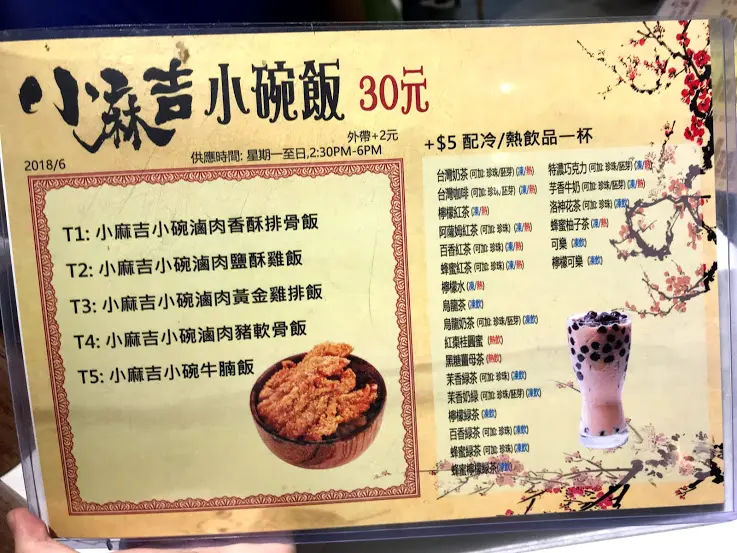 小麻吉小碗飯 30元
外帶+2元
2018/6 供應時間: 星期一至日,2:30PM-6PM
T1: 小麻吉小碗滷肉香酥排骨飯
T2: 小麻吉小碗滷肉鹽酥雞飯
T3: 小麻吉小碗滷肉黃金雞排飯
T4: 小麻吉小碗滷肉豬軟骨飯
T5: 小麻吉小碗牛腩飯
+$5 配冷/熱飲品一杯
台灣奶茶 (可加: 珍珠/胚芽) (凍/熱)
台灣咖啡 (可加: 珍珠/胚芽) (凍/熱)
檸檬紅茶 (凍/熱)
阿薩姆紅茶 (可加: 珍珠) (凍/熱)
百香紅茶 (可加: 珍珠) (凍/熱)
蜂蜜紅茶 (可加: 珍珠) (凍/熱)
檸檬水 (凍/熱)
烏龍茶 (凍飲)
烏龍奶茶 (可加: 珍珠/胚芽) (凍飲)
紅棗桂圓蜜 (熱飲)
黑糖薑母茶 (熱飲)
茉香綠茶 (可加: 珍珠) (凍飲)
茉香奶綠 (可加: 珍珠/胚芽) (凍飲)
檸檬綠茶 (凍飲)
百香綠茶 (可加: 珍珠) (凍飲)
蜂蜜綠茶 (可加: 珍珠) (凍飲)
蜂蜜檸檬綠茶 (凍飲)
特濃巧克力 (可加: 珍珠/胚芽) (凍/熱)
芋香牛奶 (可加: 珍珠/胚芽) (凍/熱)
洛神花茶 (可加: 珍珠) (凍飲)
蜂蜜柚子茶 (凍/熱)
可樂 (凍飲)
檸檬可樂 (凍飲)